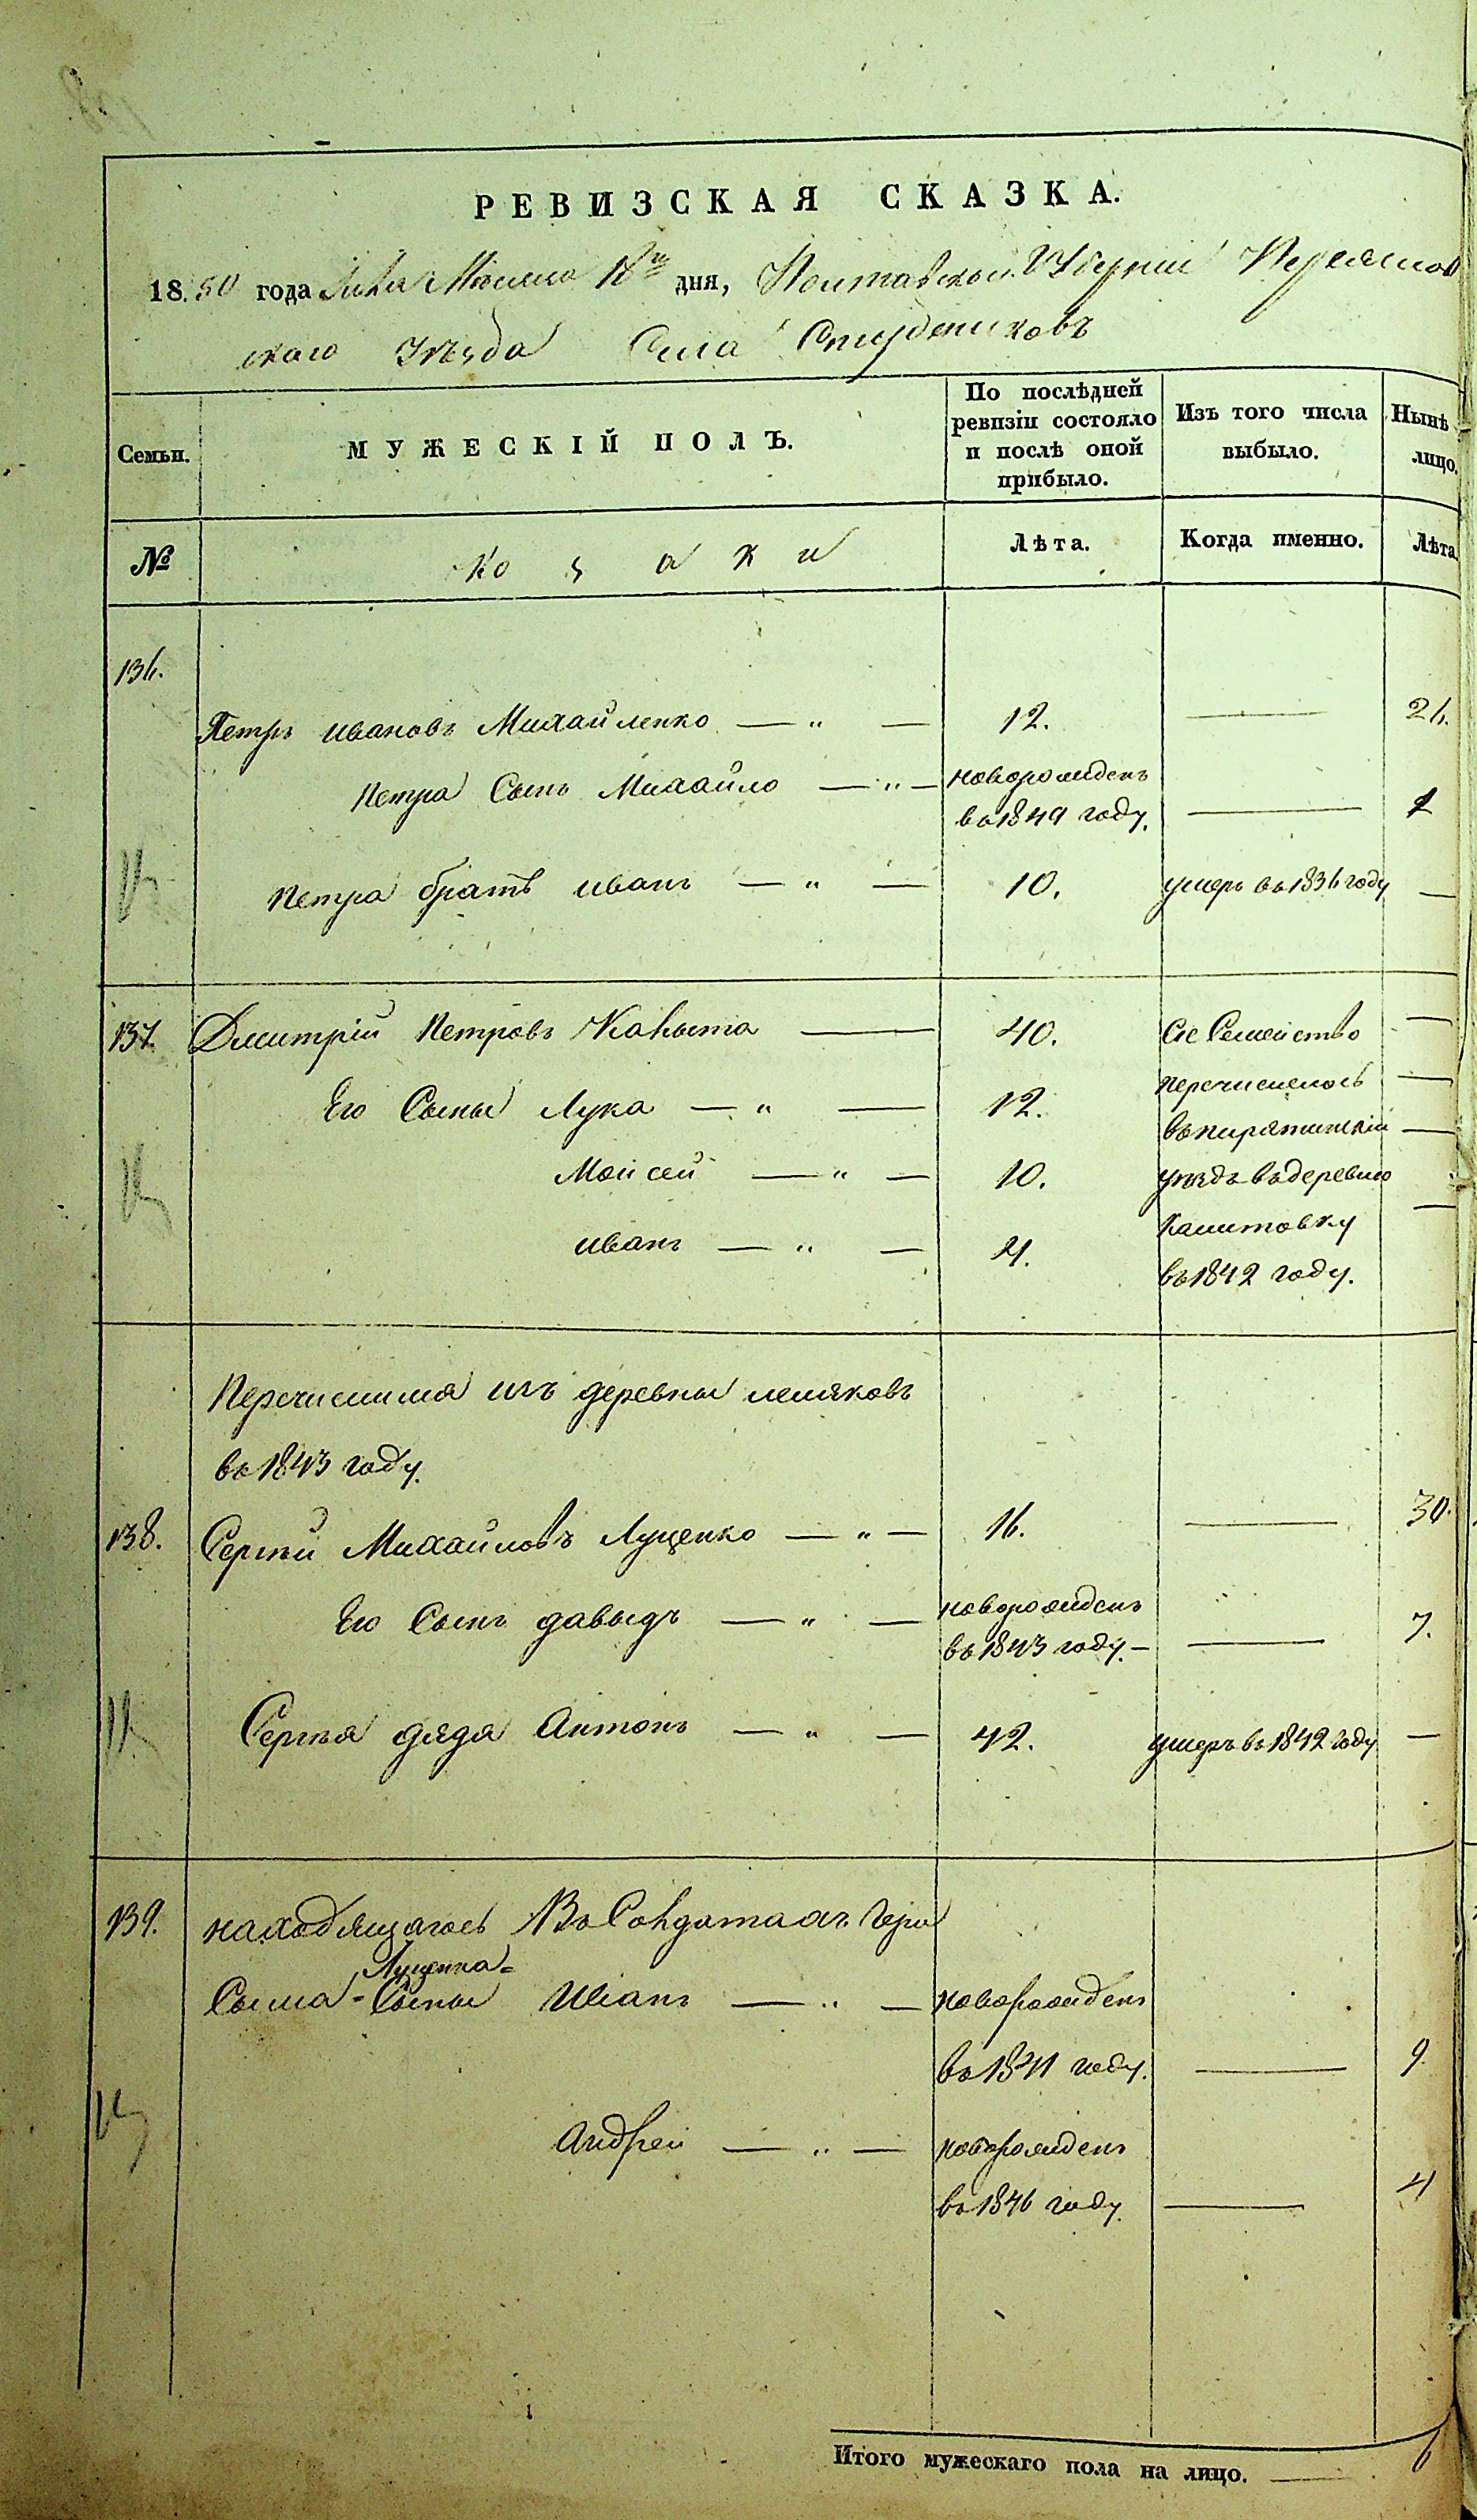 РЕВИЗСКАЯ СКАЗКА.
1850 года Мѣсяца 18го дня, Полтавской Губерніи Переяслов
скаго Уѣзда Села Студениковъ
Семьи.
МУЖЕСКІЙ ПОЛЪ.
По послѣдней ревизіи состояло и послѣ оной прибыло.
Изъ того числа выбыло.
Нынѣ лицо.
№
козаки
Лѣта.
Когда именно.
Лѣта
136.
Петръ ивановъ Михайленко — „ — 12. — 26.
Петра Сынъ Михайло — „ — новорожденъ
въ 1849 году. — 1
Петра братъ иванъ — „ — 10. умеръ въ 1836 году —
137. Дмитрій Петровъ — 40. Сіе Семейство —
Его Сыны Лука — „ — 12. перечислелось —
Моисей — „ — 10. въ пирятинскій —
уѣздъ въ деревню
иванъ — „ — 4. —
въ 1842 году.
Перечислился изъ деревни лецяковъ
въ 1843 году.
138. Сергій Михайловъ Луценко — „ — 16. — 30.
Его Сынъ давыдъ — „ — новорожденъ
въ 1843 году. — — 7.
Сергѣя дядя Антонъ — „ — 42. умеръ въ 1842 году —
139. находящагось Въ Солдатахъ Гера
Луценка
Сима - Сыны Иванъ — „ — новорожденъ
въ 1841 году. — 9
Андрей — „ — новорожденъ
въ 1846 году. — 4
Итого мужескаго пола на лицо. — 6